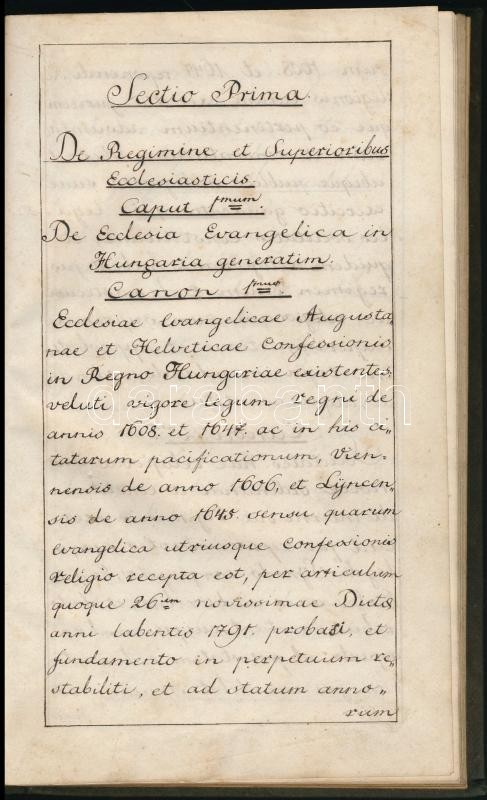 Sectio Prima.
De Regimine et Superioribus
Ecclesiasticis.
Caput 1mum.
De Ecclesia Evangelica in
Hungaria generatim.
Canon 1mus
Ecclesiae Evangelicae Augusta„
nae et Helveticae Confessionis
in Regno Hungariae existentes,
veluti vigore legum regni de
annis 1608. et 1647. ac in his ci„
tatarum pacificationum, Vien„
nensis de anno 1606, et Lyncen„
sis de anno 1645. sensu quarum
evangelica utriusque Confessionis
religio recepta est, per articulum
quoque 26um novissimae Diets
anni labentis 1791. probati, et
fundamento in perpetuum re„
stabiliti, et ad statum anno„
rum
darabanth